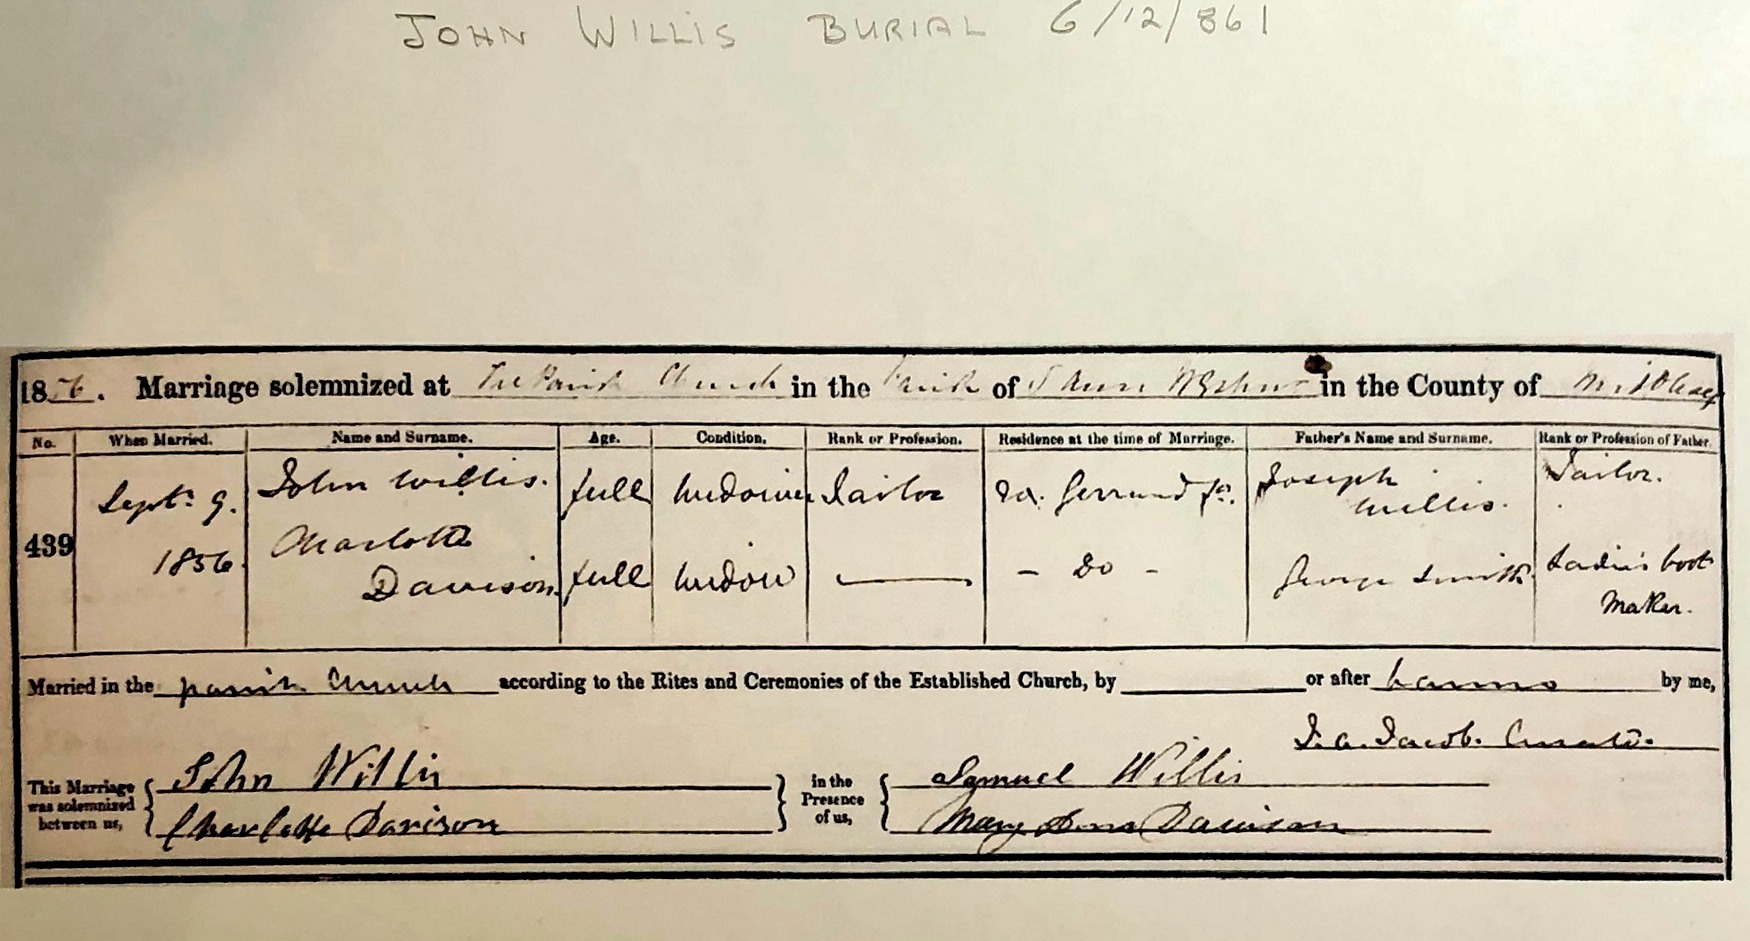 JOHN WILLIS BURIAL 6/12/861
1856. Marriage solemnized at The Parish Church in the Parish of S Anne Westmr in the County of Middlesex
No. When Married. Name and Surname. Age. Condition. Rank or Profession. Residence at the time of Marriage. Father's Name and Surname. Rank or Profession of Father.
439 Septr 9. 1856. John Willis. full widower Tailor Gerrard St. Joseph Willis. Tailor.
Charlotte Davison full widow — - Do - George Smith Ladies boot Maker.
Married in the parish Church according to the Rites and Ceremonies of the Established Church, by or after banns by me,
Jacob. Curate.
This Marriage was solemnized between us, John Willis in the Presence of us, Samuel Willis
Charlotte Davison Mary Anna Davison